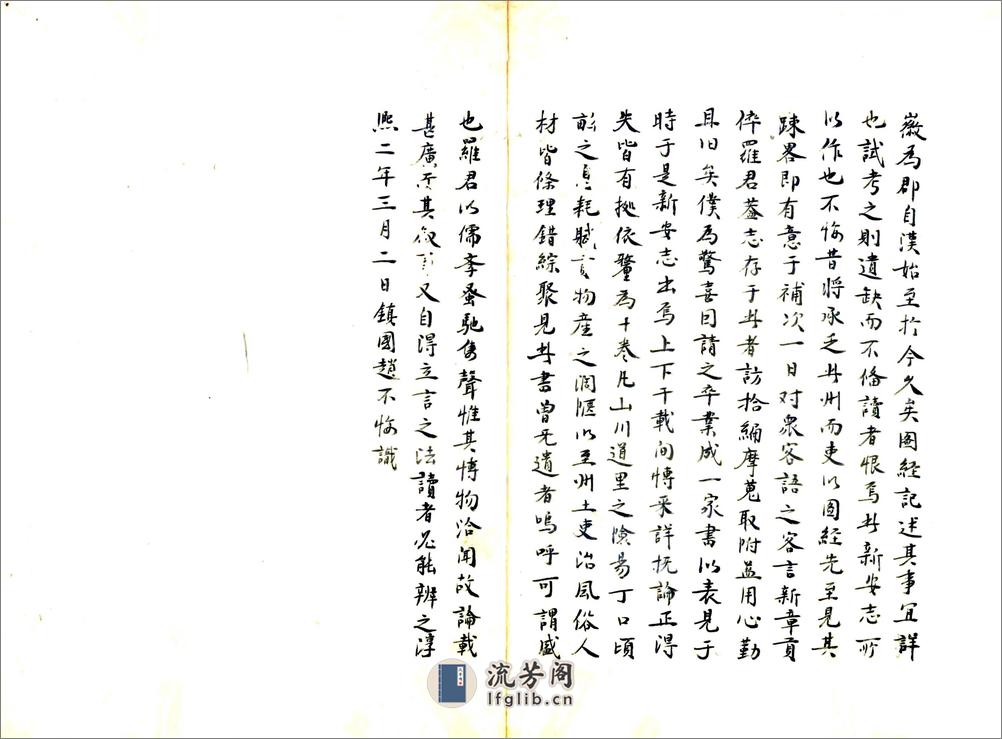 徽為郡自漢始至於今久矣圖経記述其事宜詳
也試考之則遺缺而不俻讀者恨焉此新安志所
以作也不悔昔將承乏此州而吏以圖經先至見其
踈畧即有意于補次一日对衆客語之客言新章貢
倅羅君葢志存于此者訪拾綱摩蒐取附益用心勤
且旧矣僕為驚喜因請之卒業成一家書以表見于
時于是新安志出焉上下千載间慱采詳摭論正得
失皆有㨿依釐為十卷凡山川道里之險易丁口頃
畝之息耗賦貢物産之濶陿以至州土吏治風俗人
材皆條理錯綜聚見此書曾无遺者嗚呼可謂盛
也羅君以儒季蚤馳雋聲惟其愽物洽闻故論載
甚廣而其叙事又自得立言之法讀者必能辨之淳
熙二年三月二日鎮國趙不悔識
流芳阁
lfglib.cn